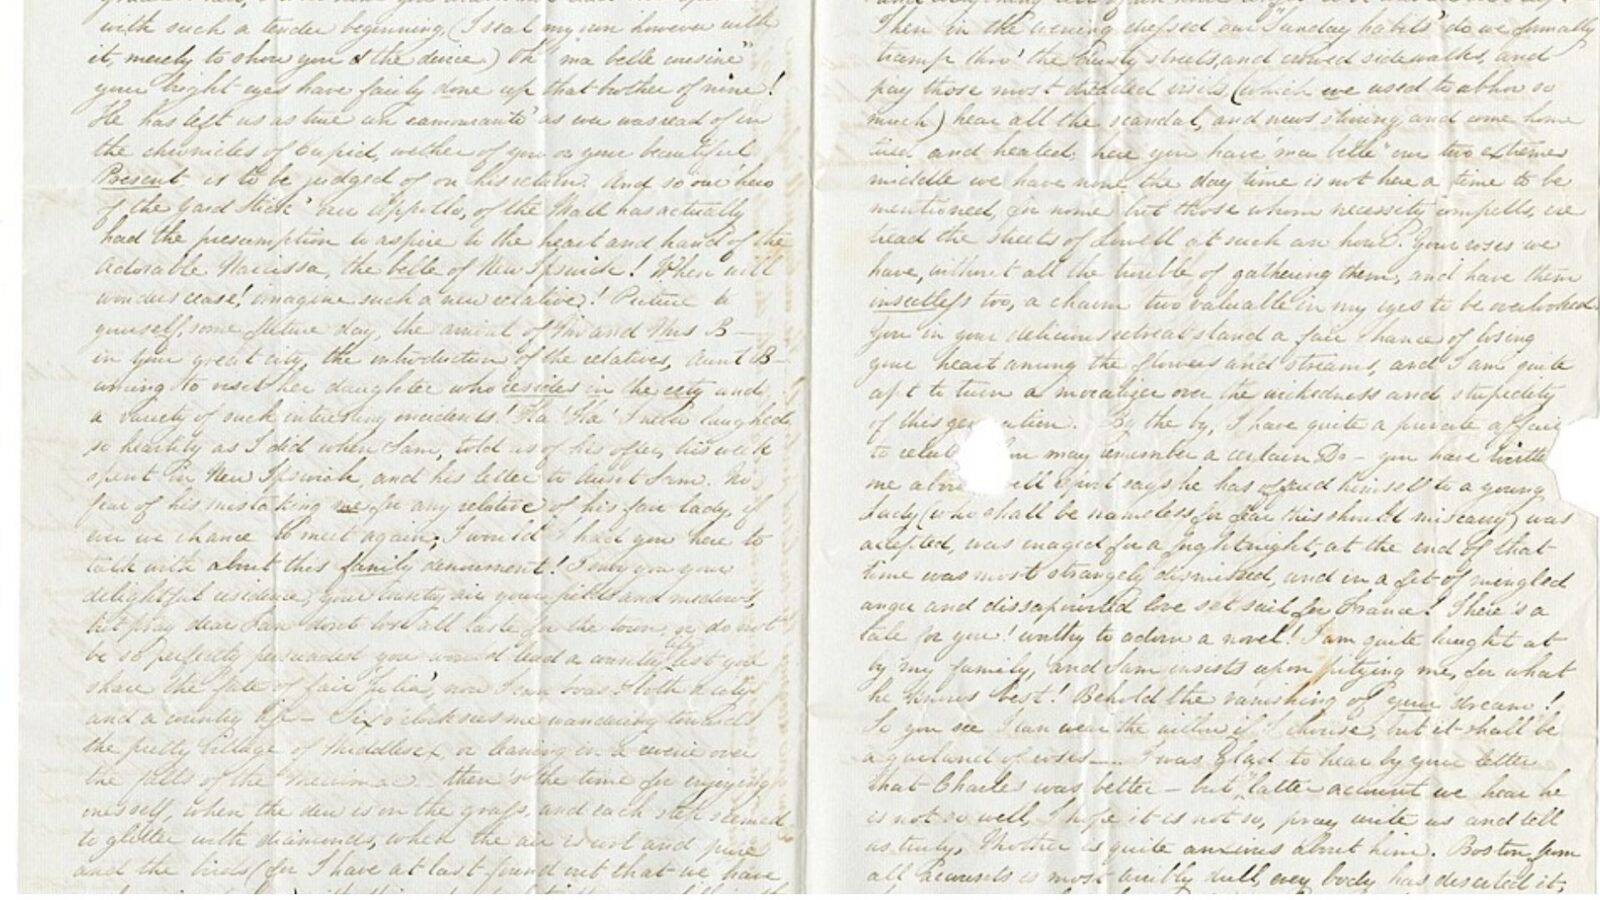 with such a tender beginning, (I seal my own however with
it, merely to show you the device.) Oh "ma belle cousine"
your bright eyes have fairly done up that brother of mine!
He has left us as true an eamourante as ever was read of in
the chronicles of Cupid, wether of you or your beautiful
Present is to be judged of on his return. And so our hero
of the yard stick" our Appollo, of the Mall has actually
had the presumption to aspire to the heart and hand of the
adorable Narcissa, the belle of New Ipswich! When will
wonders cease! imagine such a new relative! Picture to
yourself, some future day, the arrival of Mr and Mrs B—
in your great city, the introduction of the relatives, Aunt B—
coming to visit her daughter who resides in the city and
a variety of such interesting incidents! Ha! Ha! I never laughed
so heartily as I did when Sam, told us of his offer, his week
spent in New Ipswich, and his letter to Aunt Sam. No
fear of his mistaking me for any relative of his fair lady, if
ever we chance to meet again; I would I had you here to
talk with about this family denoument! I envy you your
delightful residence, your country air your fields and meadows,
but pray dear don't lose all taste for the town, or do not
be so perfectly persuaded you would lead a country life lest you
share the fate of fair Julia, now I can boast both a city
and a country life — Six o'clock sees me wandering towards
the pretty village of Middlesex, or leaning in a reverie over
the falls of the Merrimac — then's the time for enjoying
oneself, when the dew is on the grass, and each step seemed
to glitter with diamonds, when the air is and pure
and the birds (for I have at last found out that we have
Then in the evening dressed our "Sunday habits" do we formally
tramp thro' the dusty streets, and crowded sidewalks, and
pay those most dreaded visits (which we used to abhor so
much) hear all the scandal, and news stirring and come home
tired and heated; here you have "ma belle" our two extremes
middle we have none, the day time is not here a time to be
mentioned, for none but those whom necessity compells, ere
tread the streets of Lowell at such an hour. Your roses we
have, without all the trouble of gathering them, and have them
insectless too, a charm two valuable in my eyes to be overlooked.
You in your delicious retreat stand a fair chance of losing
your heart among the flowers and streams, and I am quite
apt to turn a moralizer over the wickedness and stupidity
of this gen ation. By the by, I have quite a private affair
to relat u may remember a certain Dr— you have written
me abou says he has offered himself to a young
Lady (who shall be nameless for fear this should miscarry) was
accepted, was enaged for a fnghtnight, at the end of that
time was most strangely dismissed, and in a fit of mingled
anger and dissapointed love set sail for France! There is a
tale for you! worthy to adorn a novel! I am quite laught at
by my family, and Sam insists upon pitying me, for what
he knows best! Behold the vanishing of your dream!
So you see I can wear the willow if I choose, but it shall be
a garland of roses — I was Glad to hear by your letter
that Charles was better — but latter account we hear he
is not so well, I hope it is not so, pray write us and tell
us truly, Mother is quite anxious about him. Boston from
all accounts is most terribly dull, every body has deserted it,